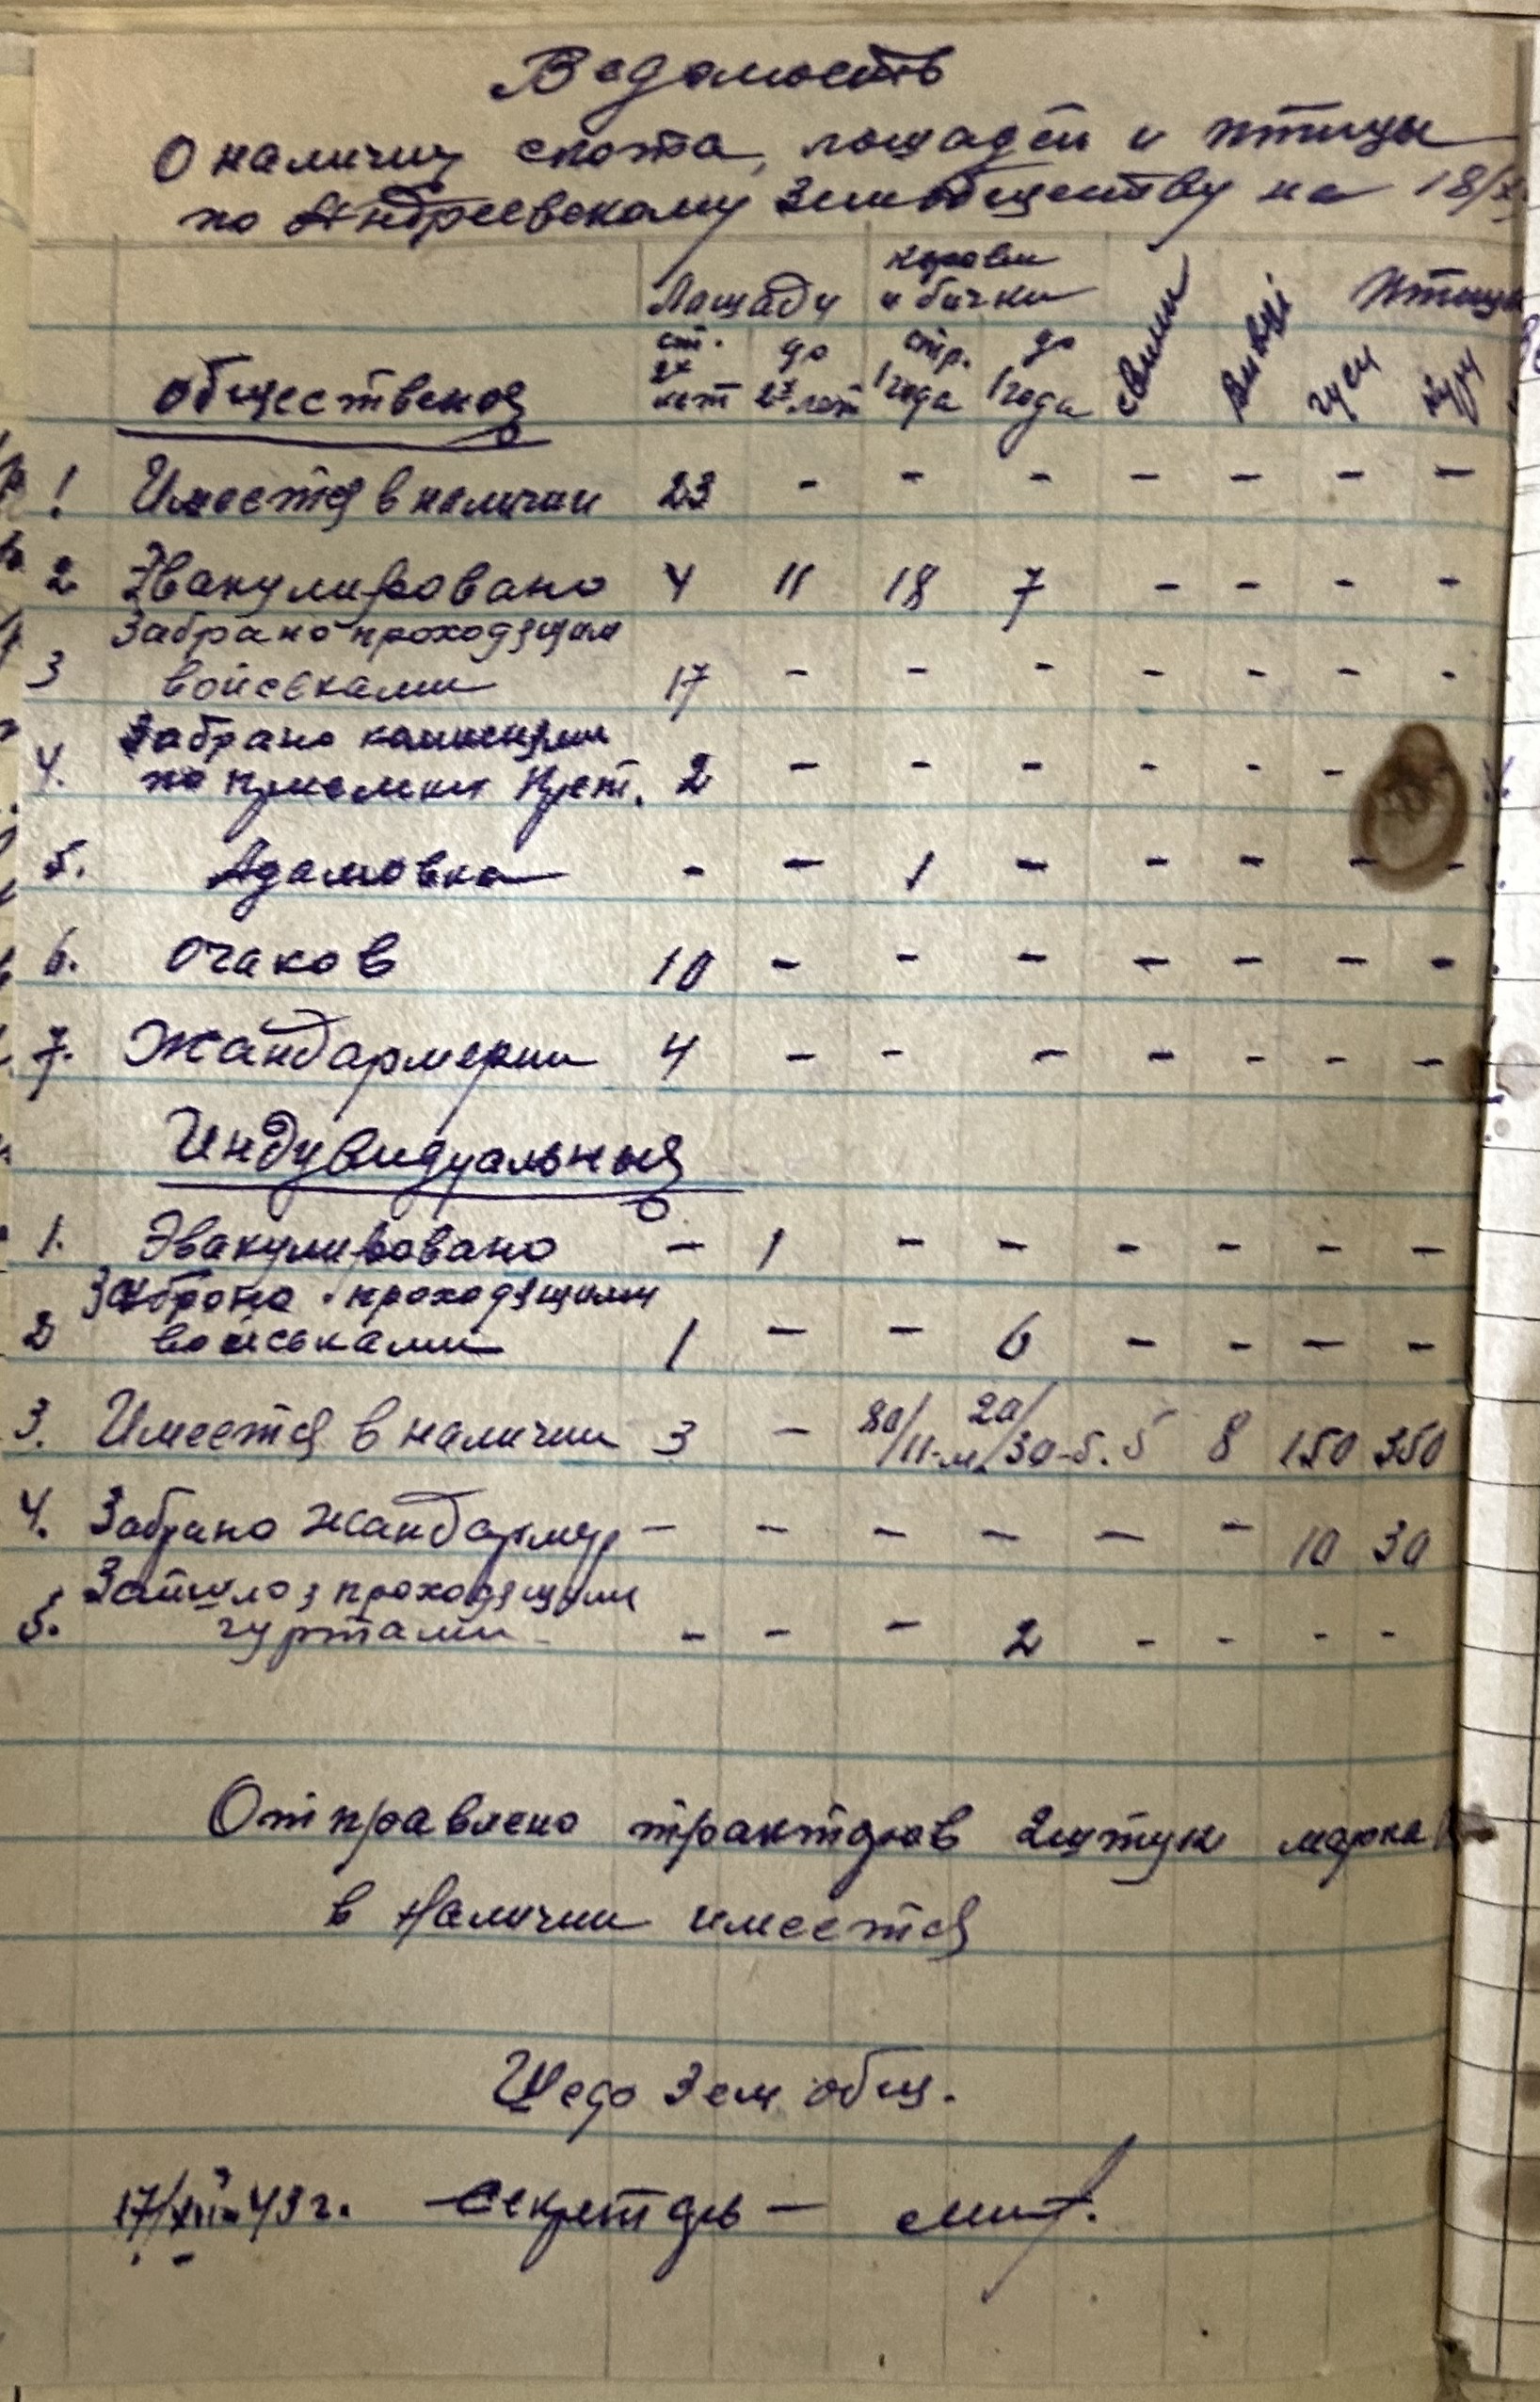 Ведомость
О наличии скота, лошадей и птицы
по Андреевскому Земобществу на 18/
Лошади коровы и бички свиньи вивци Птица
ст. 2х лет до 2х лет стр. 1 года до 1 года гуси кури
Общественоя
1 Имеется в наличии 23 - - - - - - -
2 Эвакуированo 4 11 18 7 - - - -
Забрано проходящими
3 войськами 17 - - - - - - -
Забрано
4. по приемки 2 - - - - -
5. Адамовка - - 1 - - - - -
6. Очаков 10 - - - - - - -
7. Жандармерии 4 - - - - - - -
Индувидуальныя
1. Эвакуировано - 1 - - - - - -
Забрано проходящими
2 войськами 1 - - 6 - - - -
3. Имеется в наличии 3 - 80/11-м. 20/30-б. 5 8 150 350
4. Забрано жандармер - - - - - - 10 30
Зайшло з проходящими
5. гуртами - - - 2 - - - -
Отправлено тракторов 2 штук марка
в Наличии имеется
Шеф Зем общ.
17/XII 43 г. Секретарь -